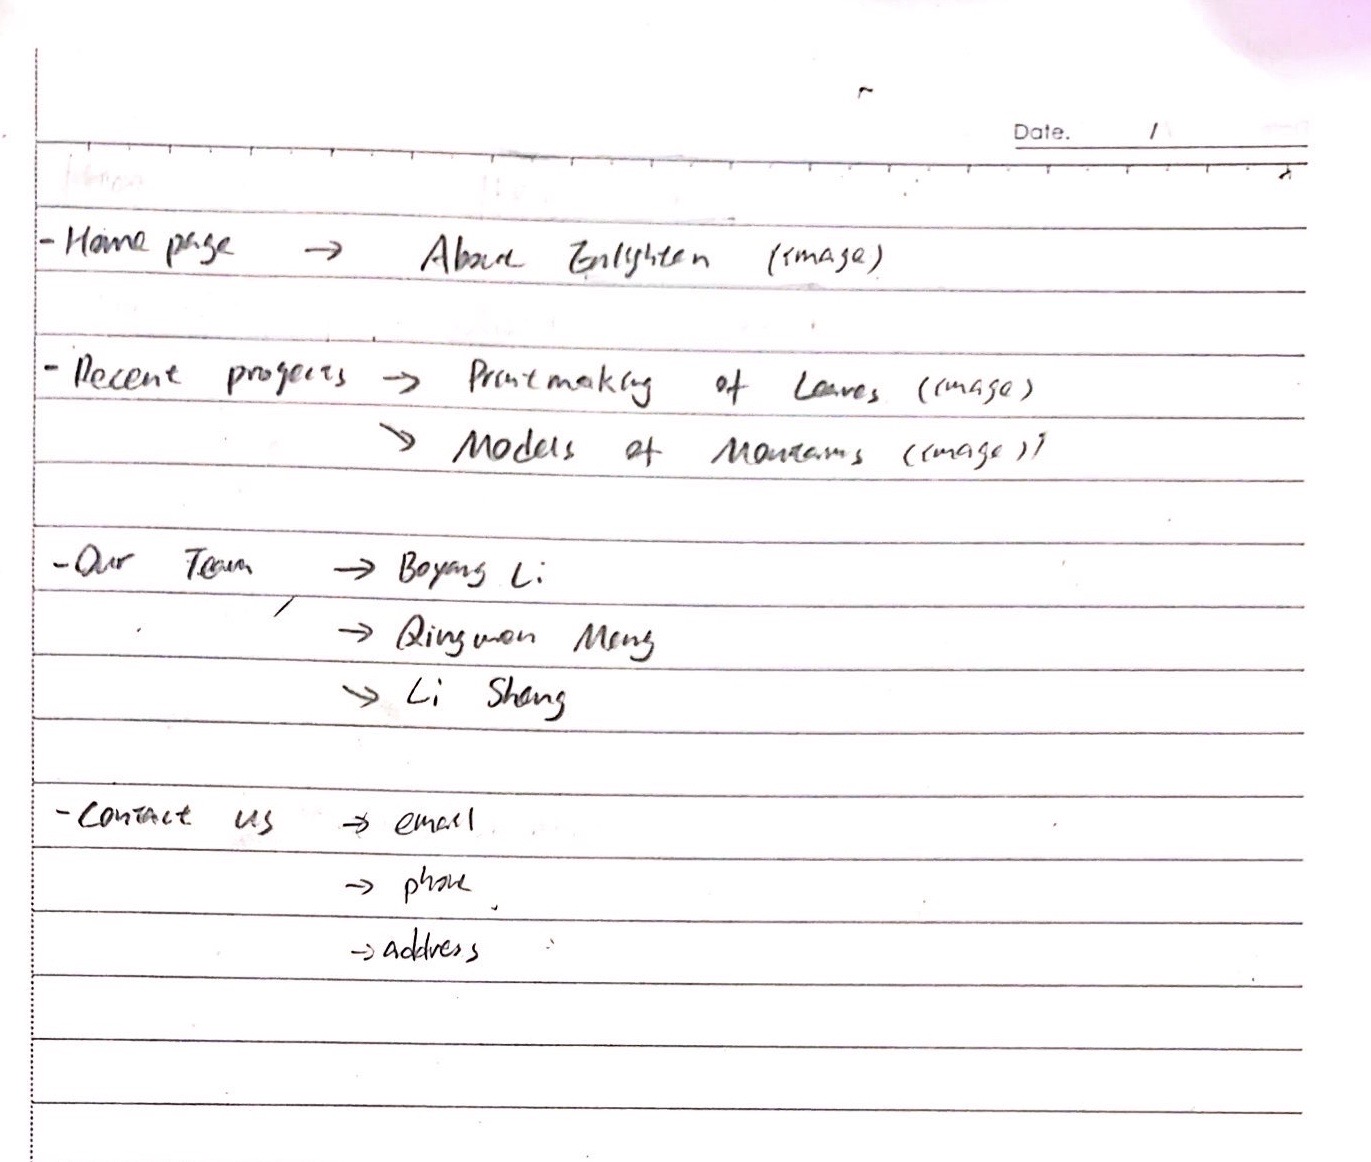 Date. /
- Home page → About Enlighten (image)
- Recent projects → Printmaking of Leaves (image)
↘ Models of Mountains (image)
- Our Team → Boyang Li
→ Qingwen Meng
↘ Li Sheng
- Contact us → email
→ phone
→ address